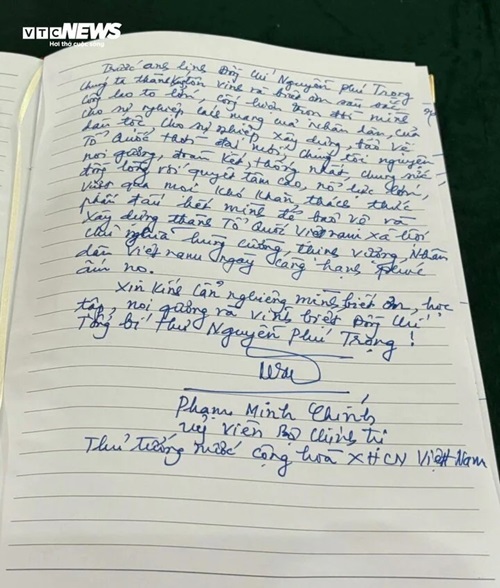 VTC NEWS
Hơi thở cuộc sống
Trước anh linh Đồng chí Nguyễn Phú Trọng
Chúng ta thành kính tôn vinh và biết ơn sâu sắc
công lao to lớn, cống hiến trọn đời mình
cho sự nghiệp cách mạng của Nhân dân, của
dân tộc cho sự nghiệp xây dựng, bảo vệ
Tổ Quốc thời đại mới. Chúng tôi nguyện
noi gương, đoàn kết, thống nhất chung sức,
đồng lòng với quyết tâm cao, nỗ lực lớn,
vượt qua mọi khó khăn, thách thức
phấn đấu hết mình để bảo vệ và
xây dựng thành Tổ Quốc Việt nam xã hội
chủ nghĩa hùng cường, thịnh vượng, Nhân
dân Việt nam ngày càng hạnh phúc
ấm no.
Xin kính cẩn nghiêng mình biết ơn, học
tập, noi gương và vĩnh biệt Đồng Chí
Tổng bí thư Nguyễn Phú Trọng !
Phạm Minh Chính
uỷ viên Bộ Chính trị
Thủ tướng nước cộng hoà XHCN Việt Nam